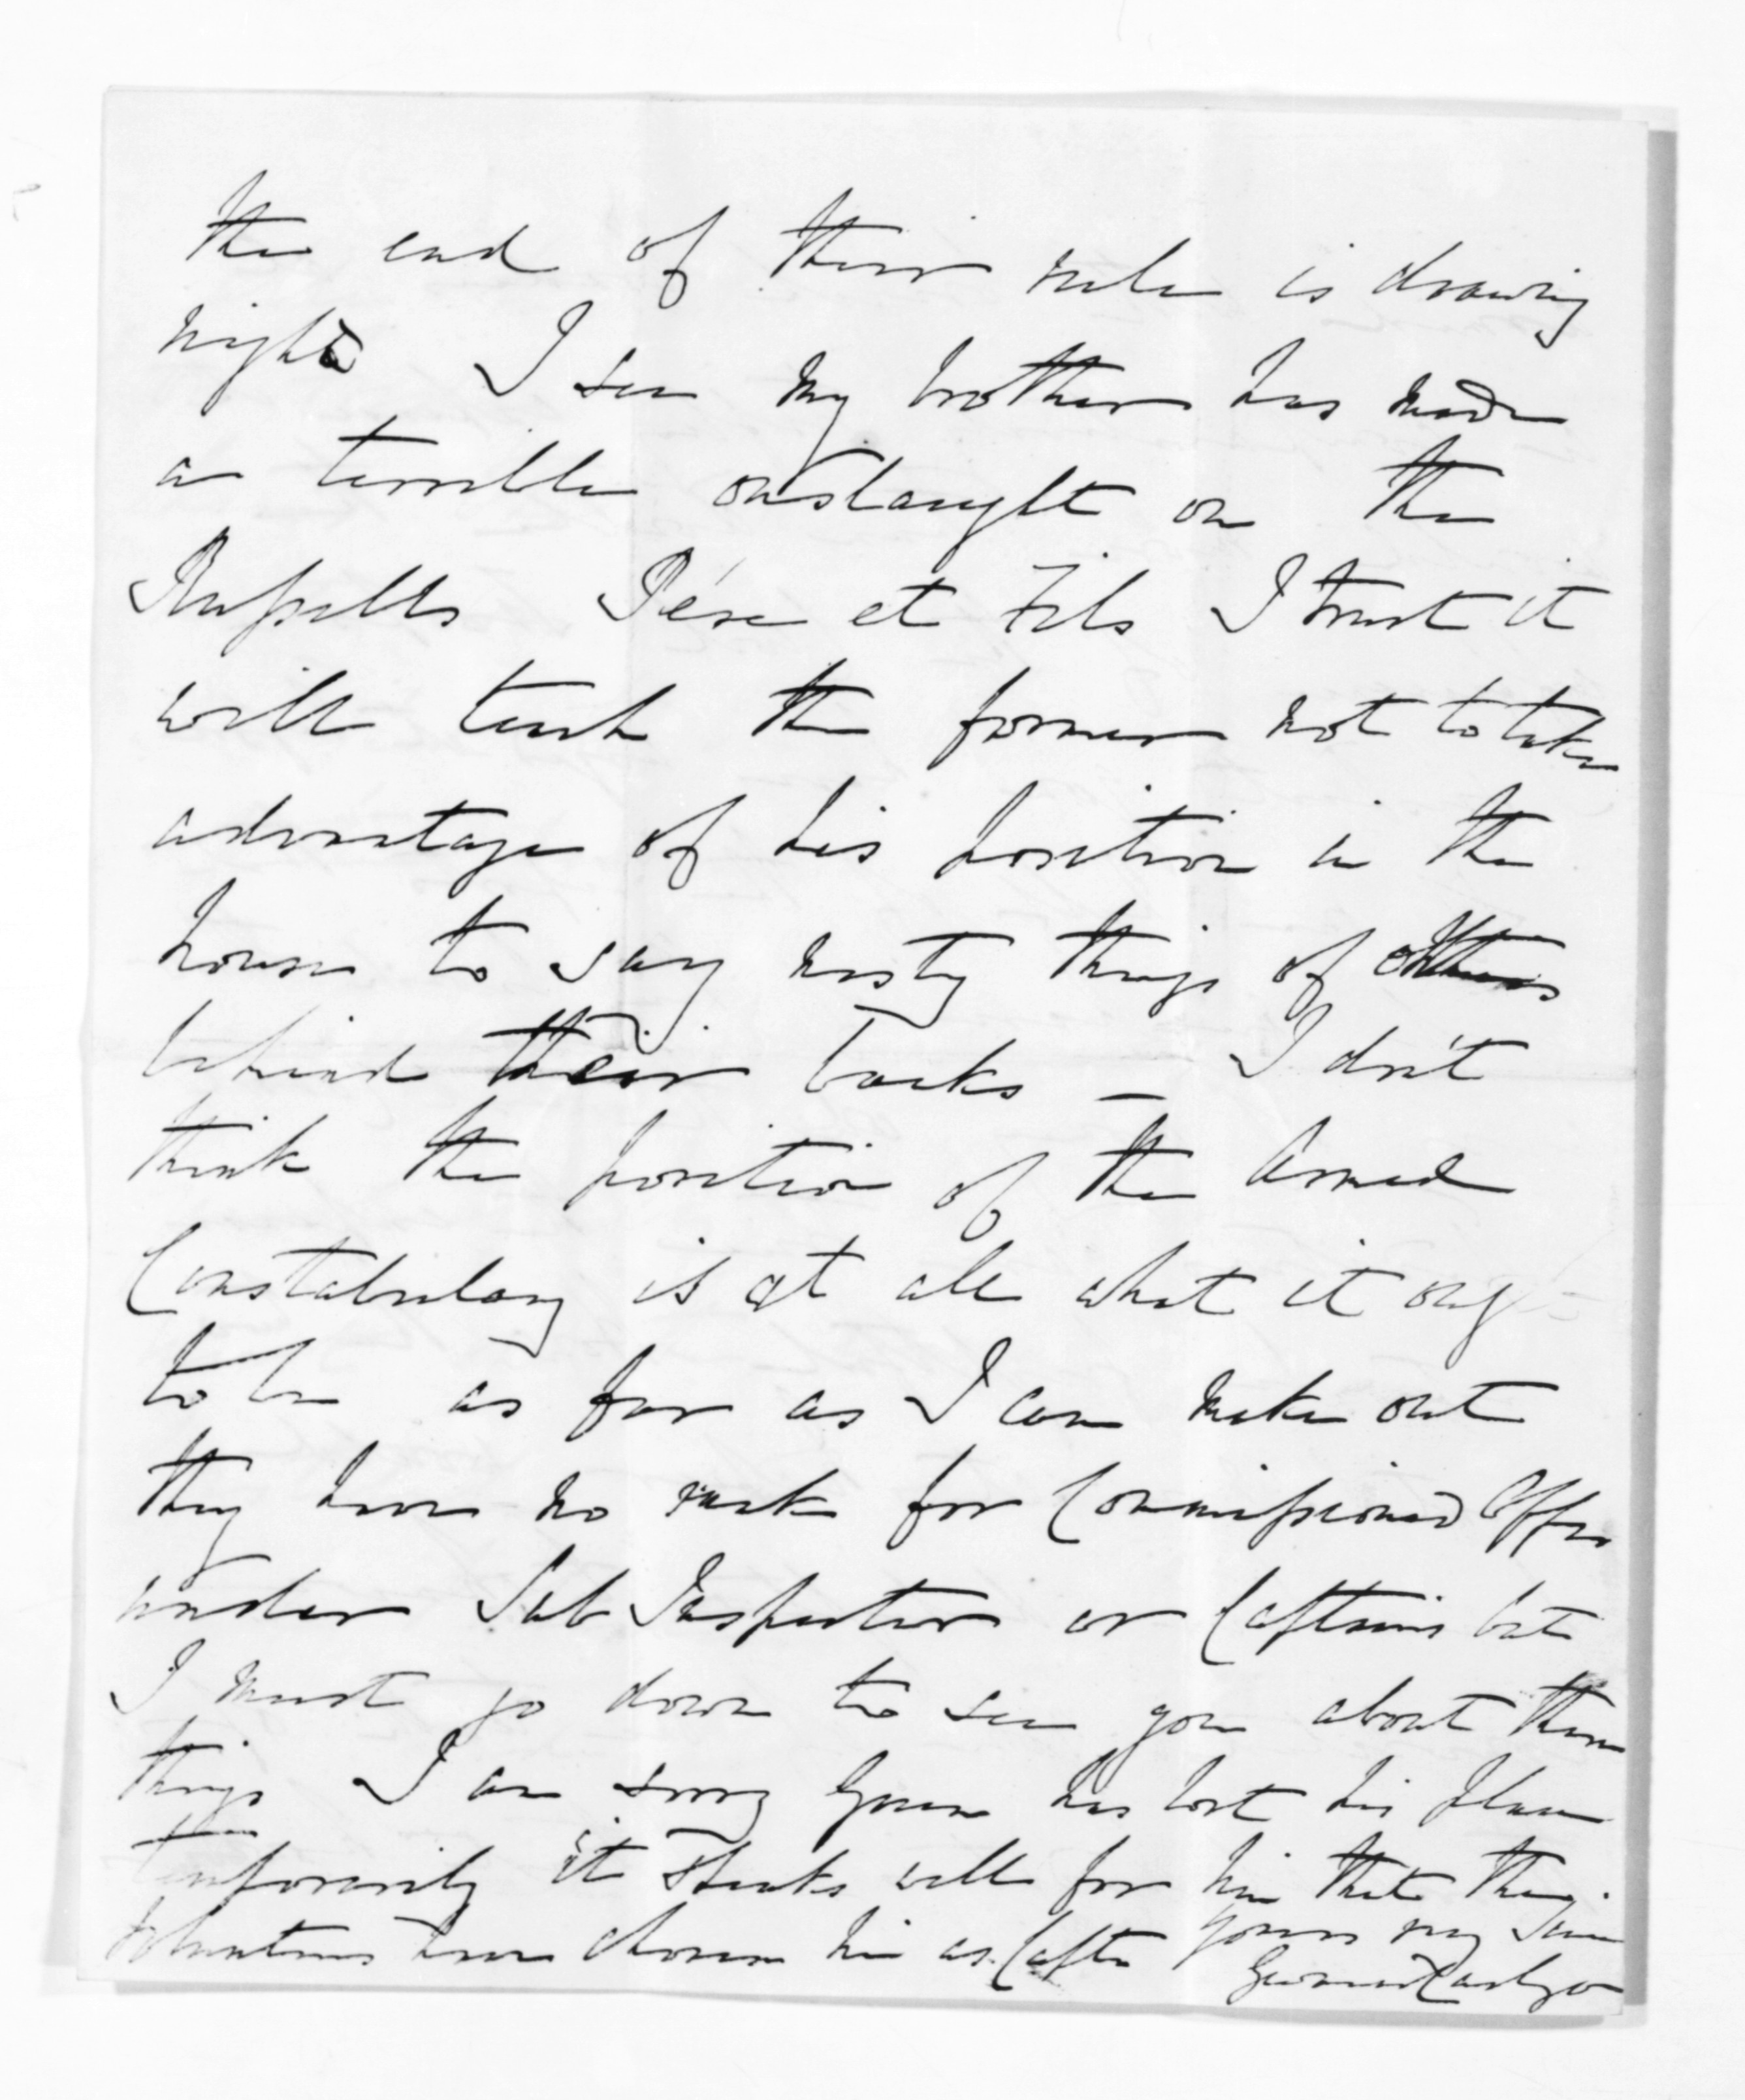 the end of their rule is drawing
night I see my brother has made
a terrible onslaught on the
Russells Pére et Fils I trust it
will teach the former not to take
advantage of his position in the
house to say nasty things of others
behind their backs — I don't
think the position of the Armed
Constabulary is at all what it ought
to be as far as I can make out
they have no rank for Commissioned Offrs
under Sub Inspector or Captains but
I must go down to see you about these
things I am sorry has lost his place
temporarily it speaks well for him that the
Volunteers have chosen him as Captn Yours very Sinc